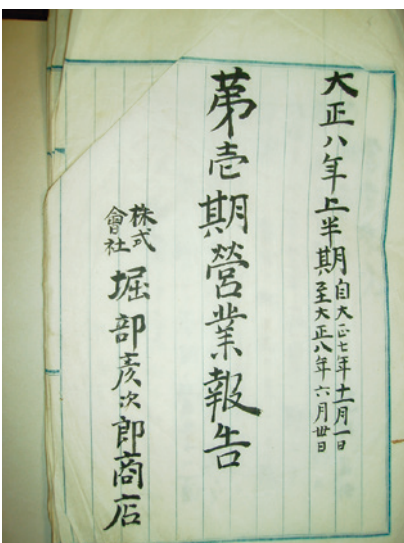 大正八年上半期
自大正七年十一月一日
至大正八年六月丗日
苐壱期營業報告
株式
會社
堀部彦次郎商店